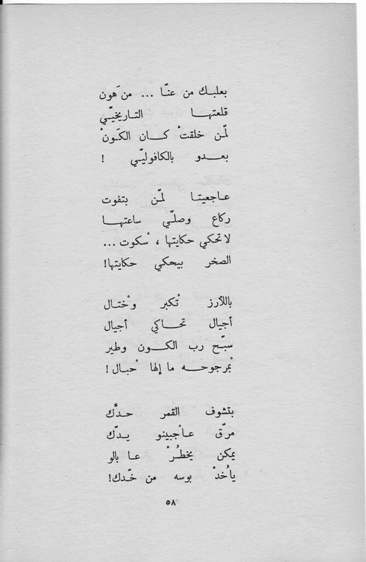 بعلبك من عنّا ... من هون
قلعتها التاريخيّي
لمّن خلقتْ كان الكَونْ
بعدو بالكافوليّي !
عاجعيتا لمّن بتفوت
ركاع وصلّي ساعتها
لا تحكي حكايتها ، سْكوت ...
الصخر بيحكي حكايتها!
باللأرز تْكبر وْختال
أجيال تحاكي أجيال
سبّح رب الكون وطير
بْمرجوحه ما إلها حْبال !
بتشوف القمر حدّك
مرّق عاجبينو يدّك
يمكن يخطُرْ عا بالو
ياخدْ بوسه من خدّك!
٥٨